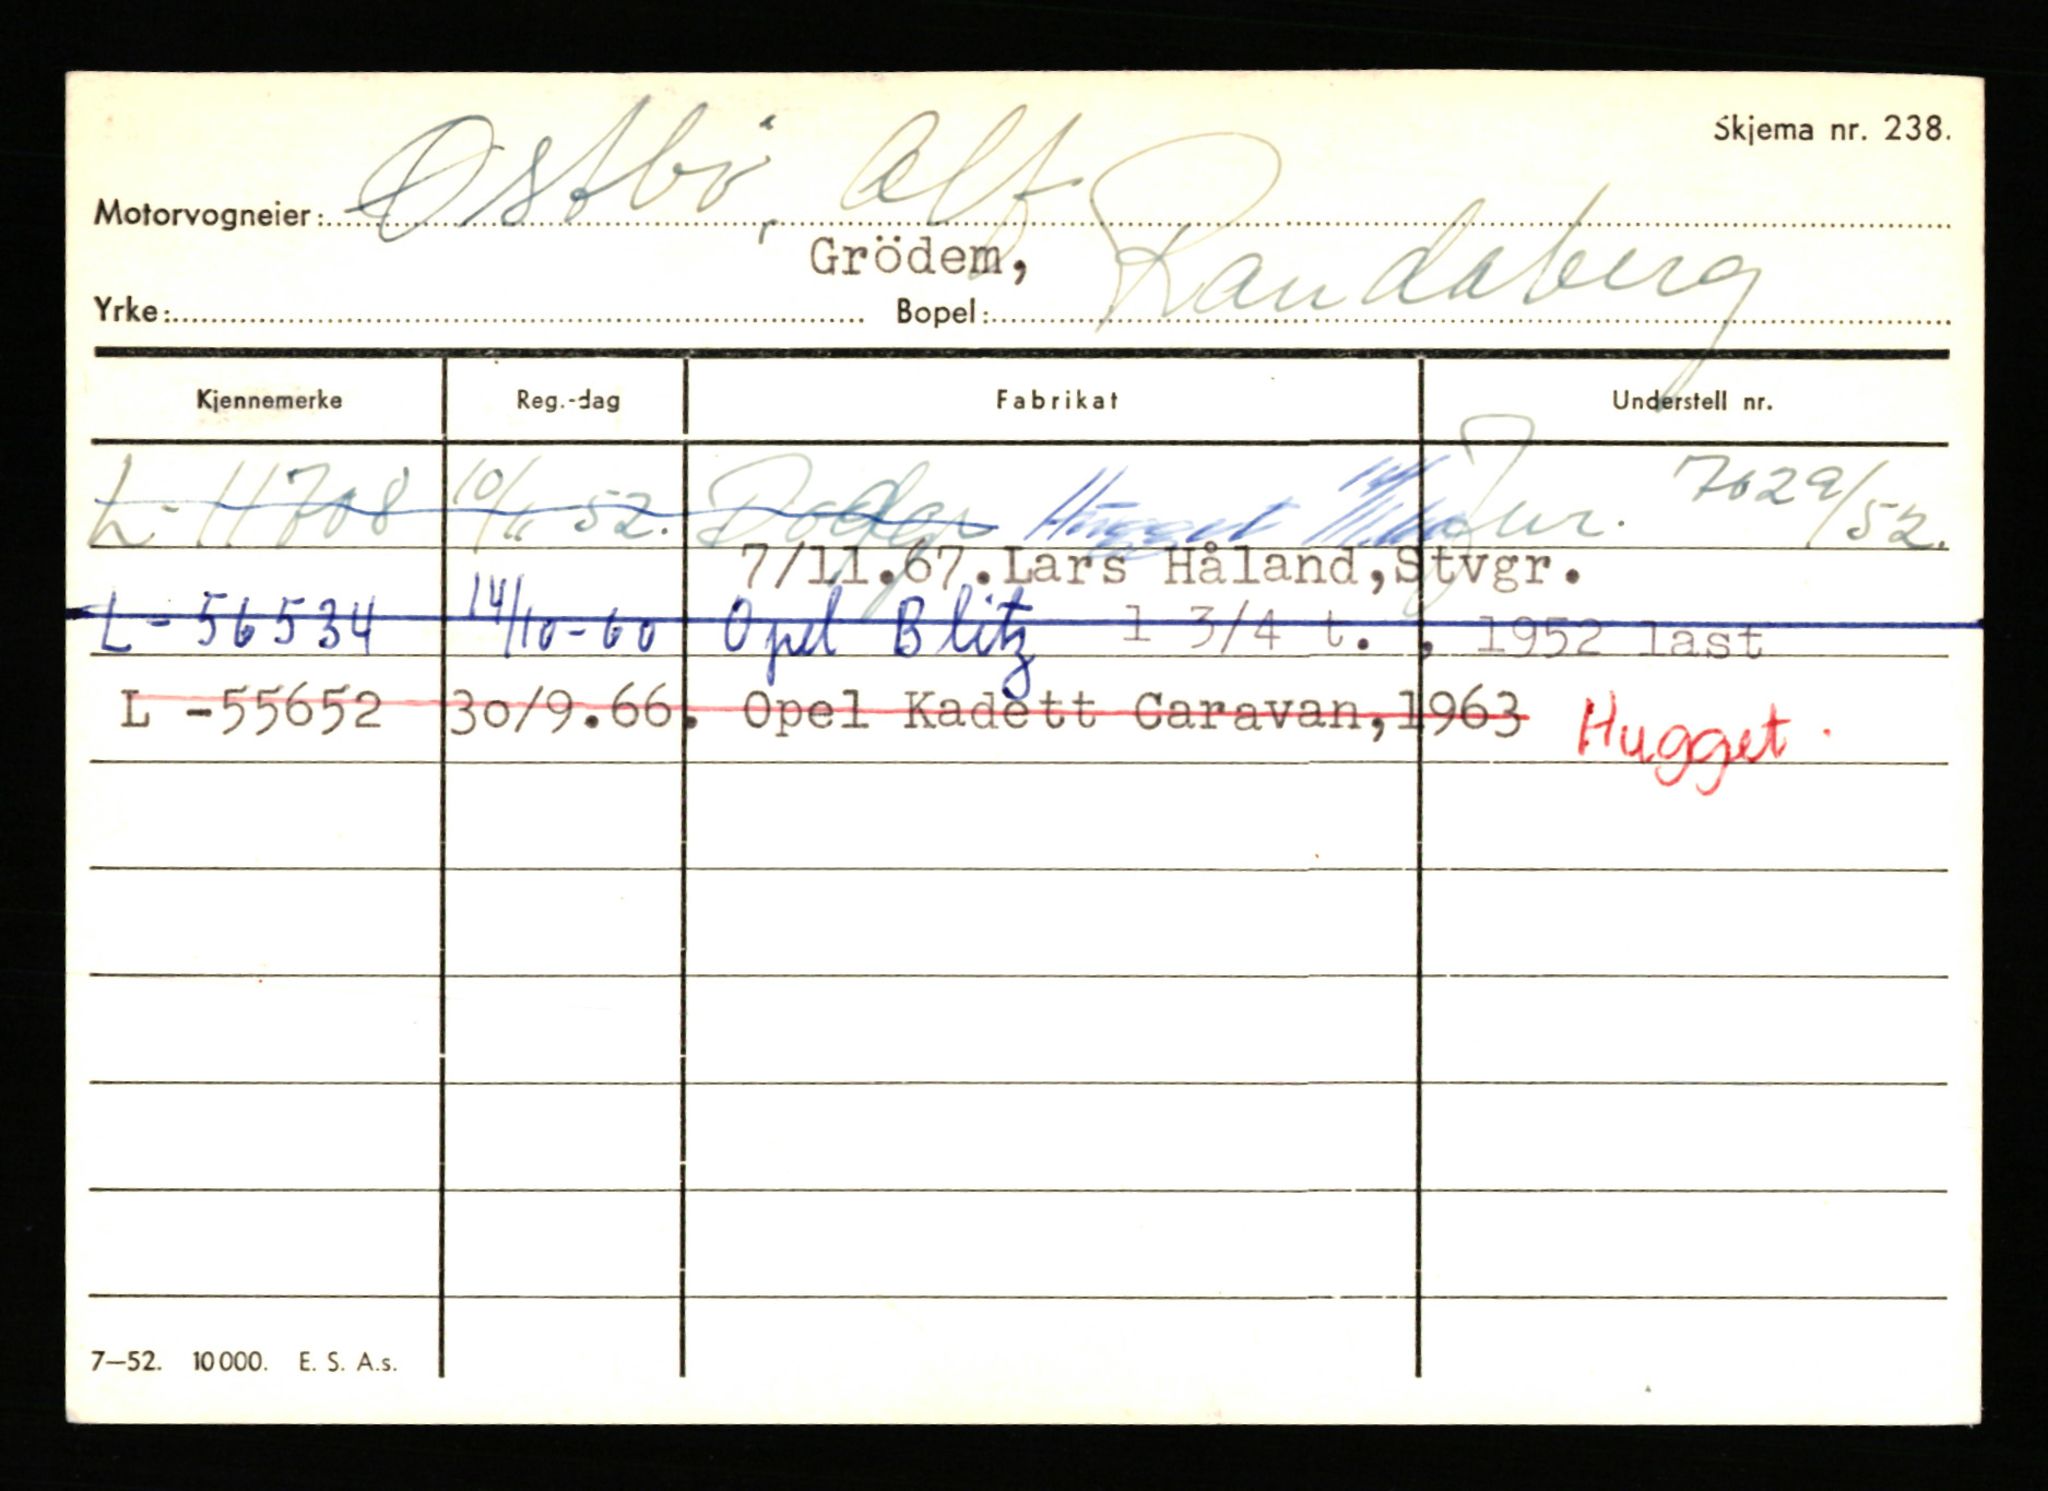 Skjema nr. 238.
Motorvogneier: Østbö, Alf
Grödem,
Yrke: Bopel: Randaberg
Kjennemerke Reg.-dag Fabrikat Understell nr.
L - 11708 10/11 52. Dodge Hugget Jnr. 7029/52.
7/11.67.Lars Håland,Stvgr.
L - 56534 14/10-60 Opel Blitz 1 3/4 t. , 1952 last
L -55652 30/9.66. Opel Kadett Caravan,1963 Hugget.
7—52. 10000. E. S. A.s.